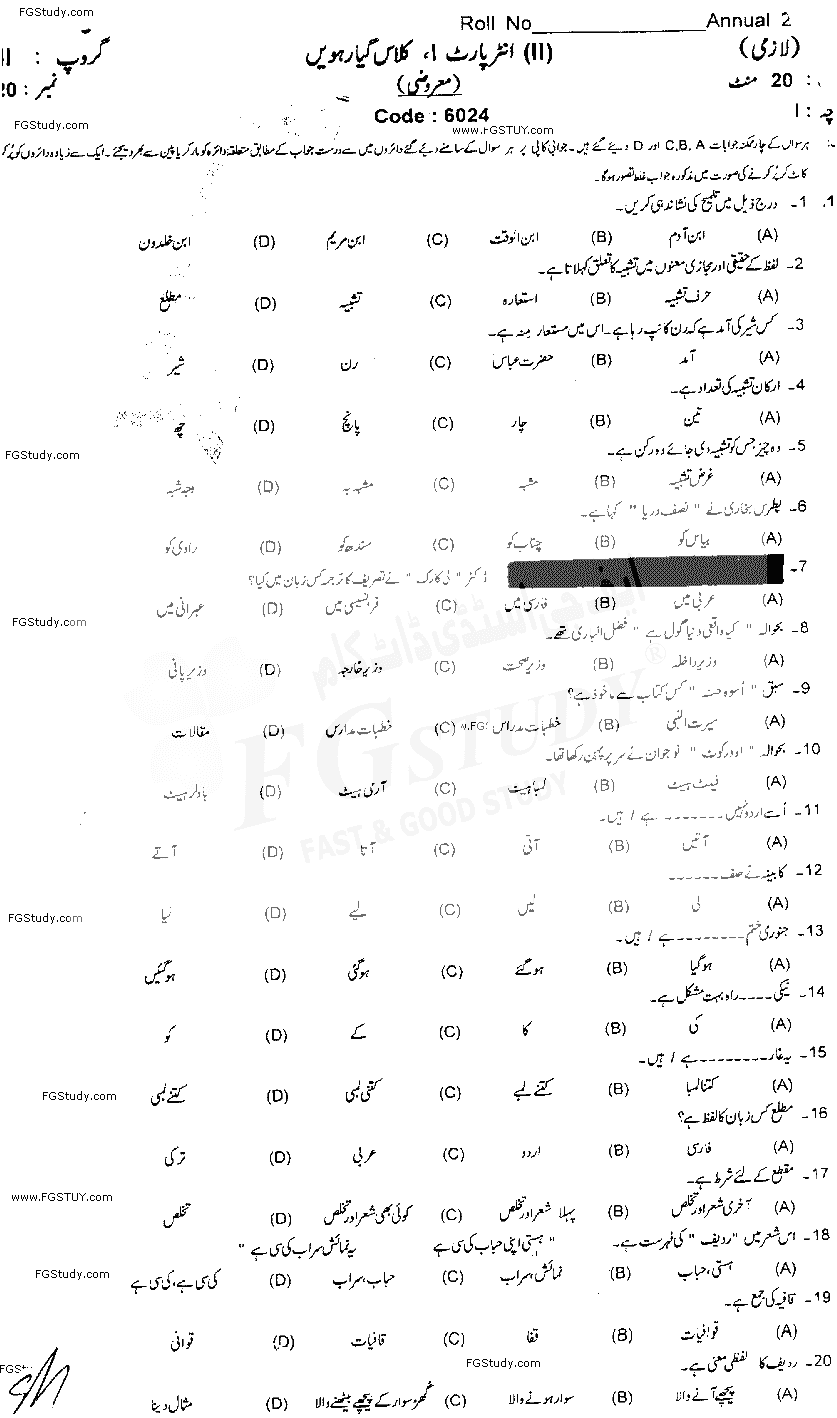 FGStudy.com
Roll No____________ Annual 2
(لازمی) (II) انٹر پارٹ ا، کلاس گیارھویں گروپ : II
20 منٹ (معروضی) نمبر : 20
Code : 6024
FGStudy.com
www.FGSTUY.com
ہر سوال کے چار ممکنہ جوابات C,B,A اور D دیئے گئے ہیں۔ جوابی کاپی پر ہر سوال کے سامنے دیئے گئے دائروں میں سے درست جواب کے مطابق متعلقہ دائرہ کو مارکر یا پین سے بھر دیجئے۔ ایک سے زیادہ دائروں کو پُر کرنے یا
کاٹ کر پُر کرنے کی صورت میں مذکورہ جواب غلط تصور ہوگا۔
1. 1- درج ذیل میں تلمیح کی نشاندہی کریں۔
(A) ابن آدم (B) ابن الوقت (C) ابن مریم (D) ابن خلدون
2- لفظ کے حقیقی اور مجازی معنوں میں تشبیہ کا تعلق کہلاتا ہے۔
(A) حرف تشبیہ (B) استعارہ (C) تشبیہ (D) مطلع
3- کس شیر کی آمد ہے کہ رن کانپ رہا ہے۔ اس میں مستعار منہ ہے۔
(A) آمد (B) حضرت عباس (C) رن (D) شیر
4- ارکان تشبیہ کی تعداد ہے۔
(A) تین (B) چار (C) پانچ (D) چھ
FGStudy.com
5- وہ چیز جس کو تشبیہ دی جائے وہ رکن ہے۔
(A) غرض تشبیہ (B) مشبہ (C) مشبہ بہ (D) وجہ شبہ
6- پطرس بخاری نے " نصف دریا " کہا ہے۔
(A) بیاس کو (B) چناب کو (C) سندھ کو (D) راوی کو
7- ڈاکٹر " لی کارک " نے تصریف کا ترجمہ کس زبان میں کیا؟
(A) عربی میں (B) فارسی میں (C) فرانسیسی میں (D) عبرانی میں
FGStudy.com
8- بحوالہ " کیا واقعی دنیا گول ہے " فضل انباری تھے۔
(A) وزیر داخلہ (B) وزیر صحت (C) وزیر خارجہ (D) وزیر پانی
ایف جی اسٹڈی ڈاٹ کام
9- سبق " اُسوہ حسنہ " کس کتاب سے ماخوذ ہے؟
(A) سیرت النبی (B) خطبات مدراس (C) خطبات مدارس (D) مقالات
FGSTUDY ®
10- بحوالہ " اوورکوٹ " نوجوان نے سر پر پہن رکھا تھا۔
(A) فیلٹ ہیٹ (B) لمبا ہیٹ (C) آرمی ہیٹ (D) باولر ہیٹ
FAST & GOOD STUDY
11- اُسے اردو نہیں ------- ہے / ہیں۔
(A) آتیں (B) آتی (C) آتا (D) آتے
12- کابینہ نے حلف ------
(A) لی (B) لیں (C) لیے (D) لیا
FGStudy.com
13- جنوری ختم -------- ہے / ہیں۔
(A) ہو گیا (B) ہو گئے (C) ہو گئی (D) ہو گئیں
14- نیکی ---- راہ بہت مشکل ہے۔
(A) کی (B) کا (C) کے (D) کو
15- یہ غار --------- ہے / ہیں۔
(A) کتنا لمبا (B) کتنے لمبے (C) کتنی لمبی (D) کتنے لمبی
FGStudy.com
16- مطلع کس زبان کا لفظ ہے؟
(A) فارسی (B) اردو (C) عربی (D) ترکی
17- مقطع کے لئے شرط ہے۔
www.FGSTUY.com
(A) آخری شعر اور تخلص (B) پہلا شعر اور تخلص (C) کوئی بھی شعر اور تخلص (D) تخلص
18- اس شعر میں "ردیف" کی فہرست ہے۔ " ہستی اپنی حباب کی سی ہے یہ نمائش سراب کی سی ہے "
(A) ہستی، حباب (B) نمائش، سراب (C) حباب، سراب (D) کی سی ہے، کی سی ہے
FGStudy.com
19- قافیہ کی جمع ہے۔
(A) قوافیات (B) قفا (C) قافیات (D) قوافی
20- ردیف کا لفظی معنی ہے۔
FGStudy.com
(A) پیچھے آنے والا (B) سوار ہونے والا (C) گھڑ سوار کے پیچھے بیٹھنے والا (D) مثال دینا